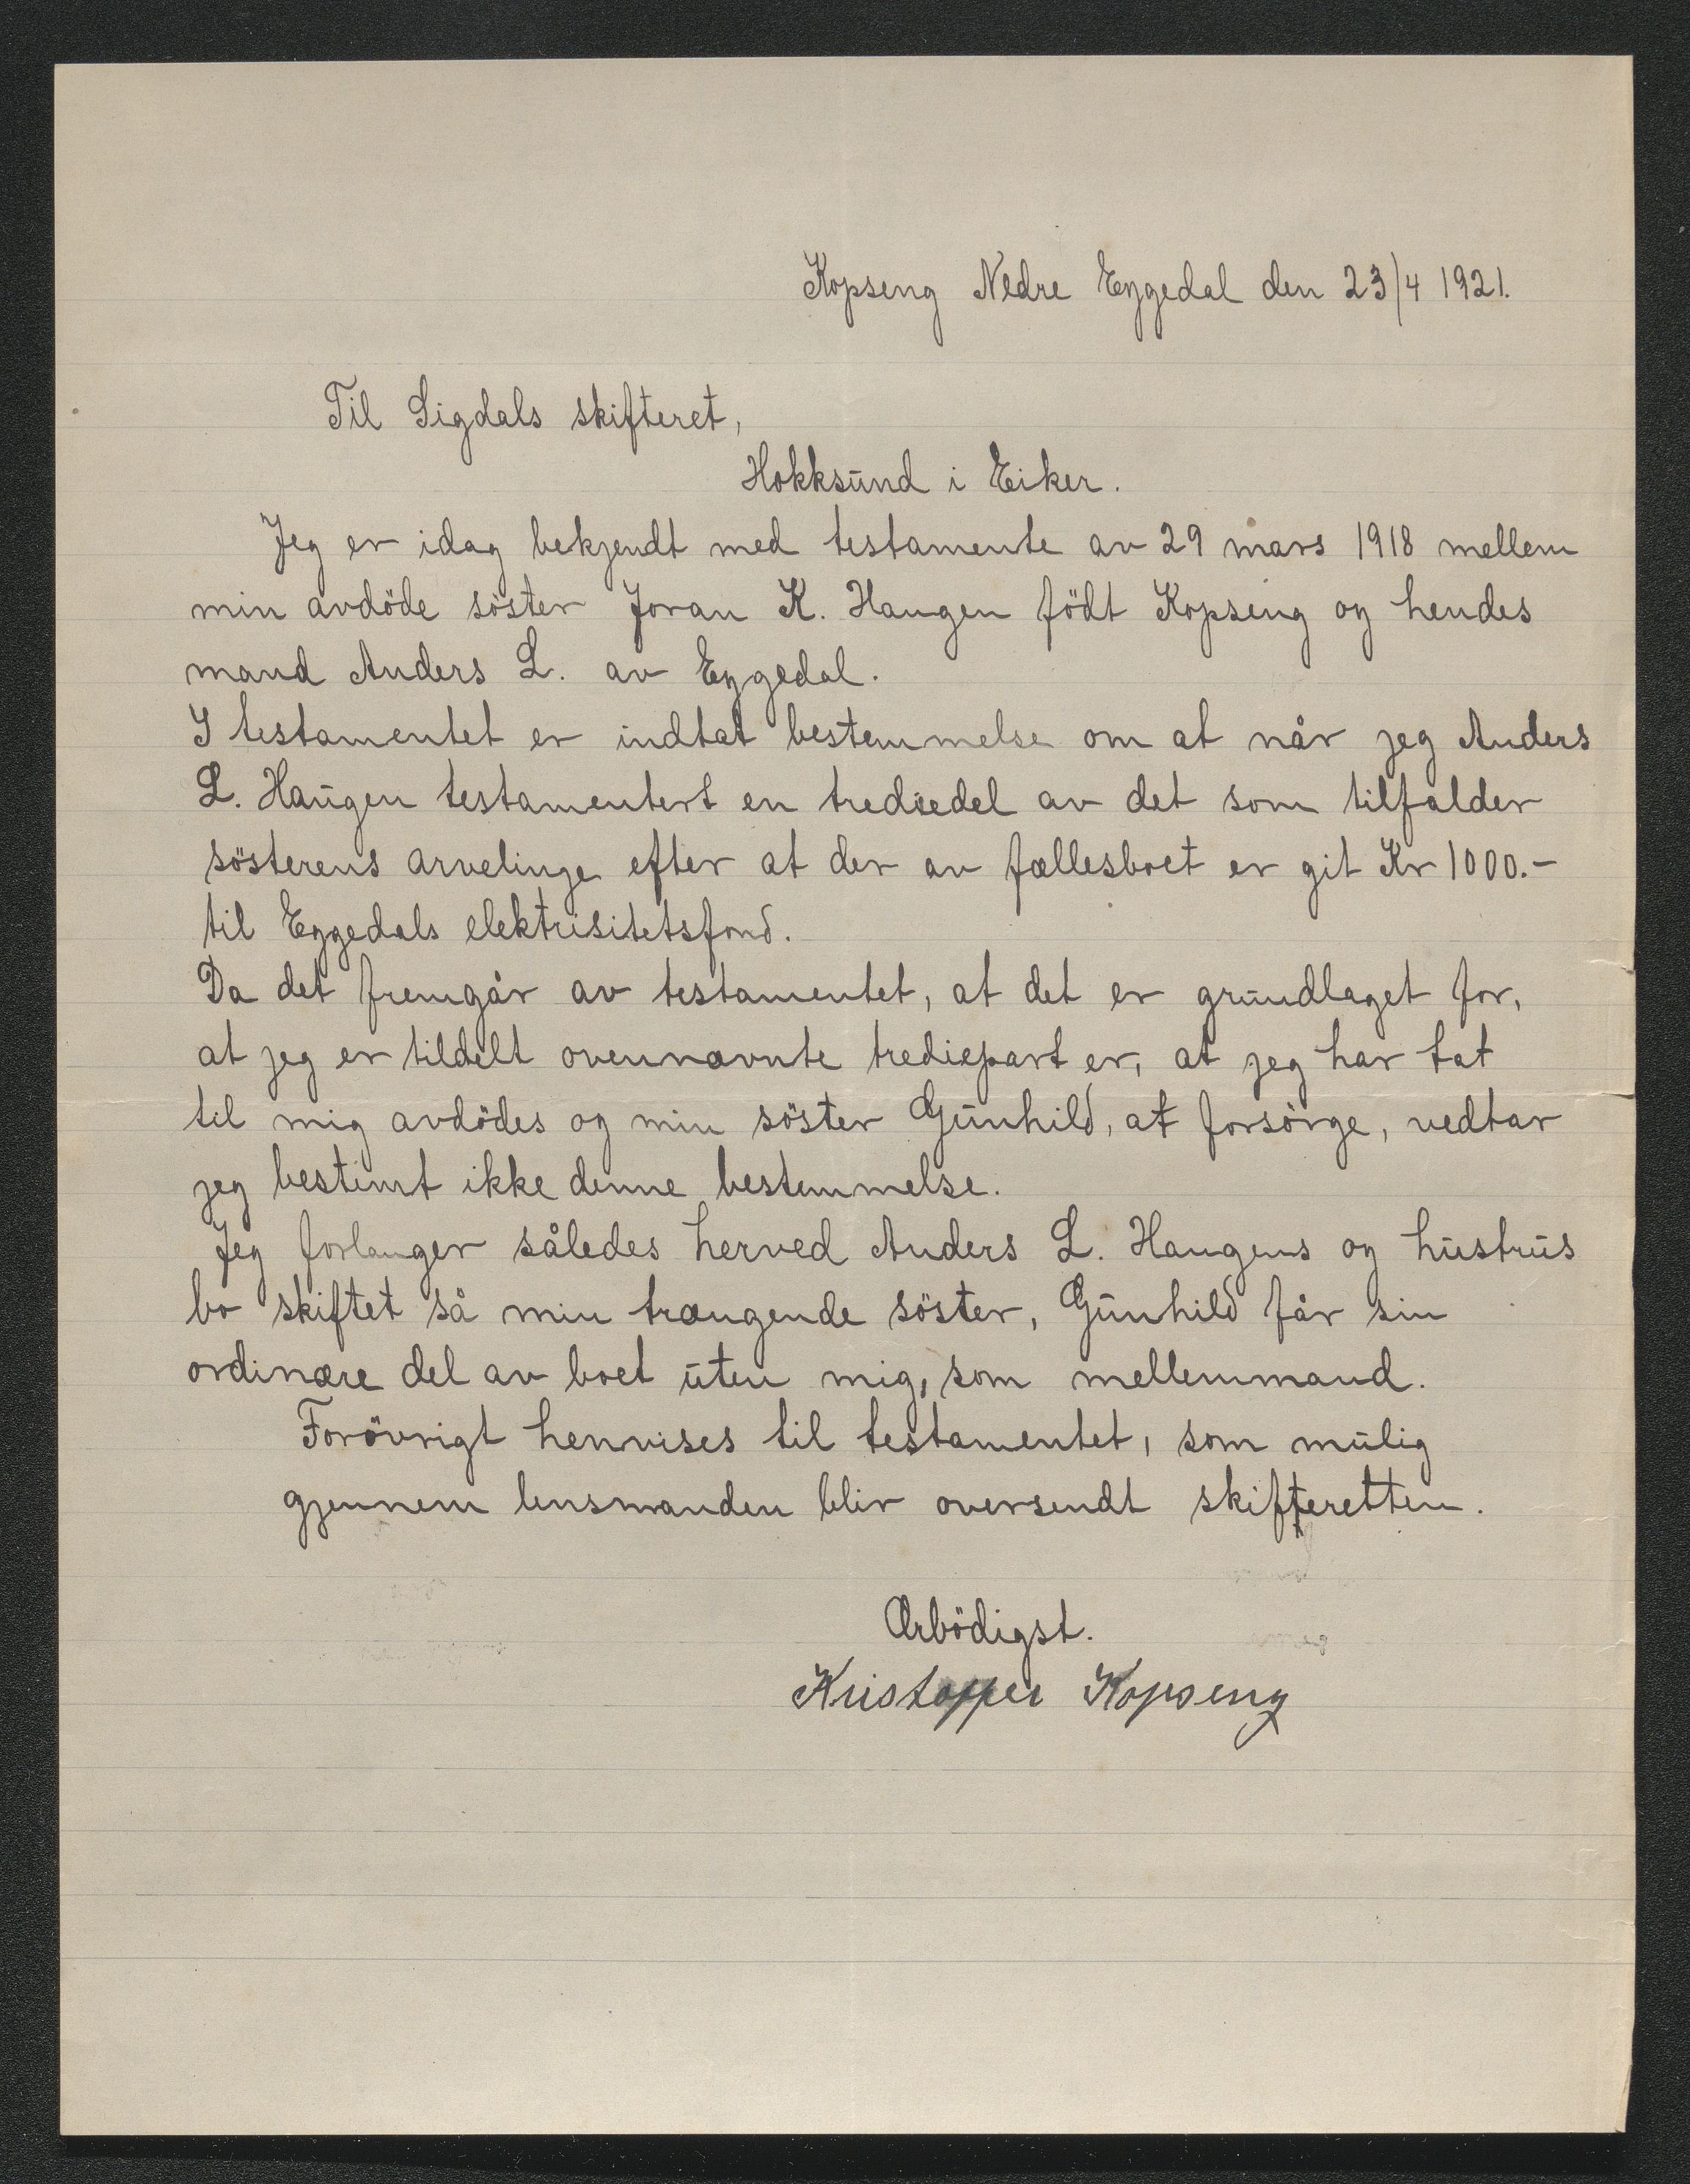 Kopseng Nedre Eggedal den 23/4 1921.
Til Sigdals skifteret,
Hokksund i Eiker.
Jeg er idag bekjendt med testamente av 29 mars 1918 mellem
min avdöde söster Joran K. Haugen födt Kopseng og hendes
mand Anders L. av Eggedal.
I testamentet er indtat bestemmelse om at når jeg Anders
L. Haugen testamentert en trediedel av det som tilfalder
sösterens arvelinge efter at der av fællesboet er git Kr 1000.-
til Eggedals elektrisitetsfond.
Da det fremgår av testamentet, at det er grundlaget for,
at jeg er tildelt ovennævnte trediepart er, at jeg har tat
til mig avdödes og min söster Gunhild, at forsörge, vedtar
jeg bestimt ikke denne bestemmelse.
Jeg forlanger således herved Anders L. Haugens og hustrus
bo skiftet så min trængende söster, Gunhild får sin
ordinære del av boet uten mig, som mellemmand.
Forövrigt henvises til testamentet, som mulig
gjennem lensmanden blir oversendt skifteretten.
Ærbödigst.
Kristoffer Kopseng